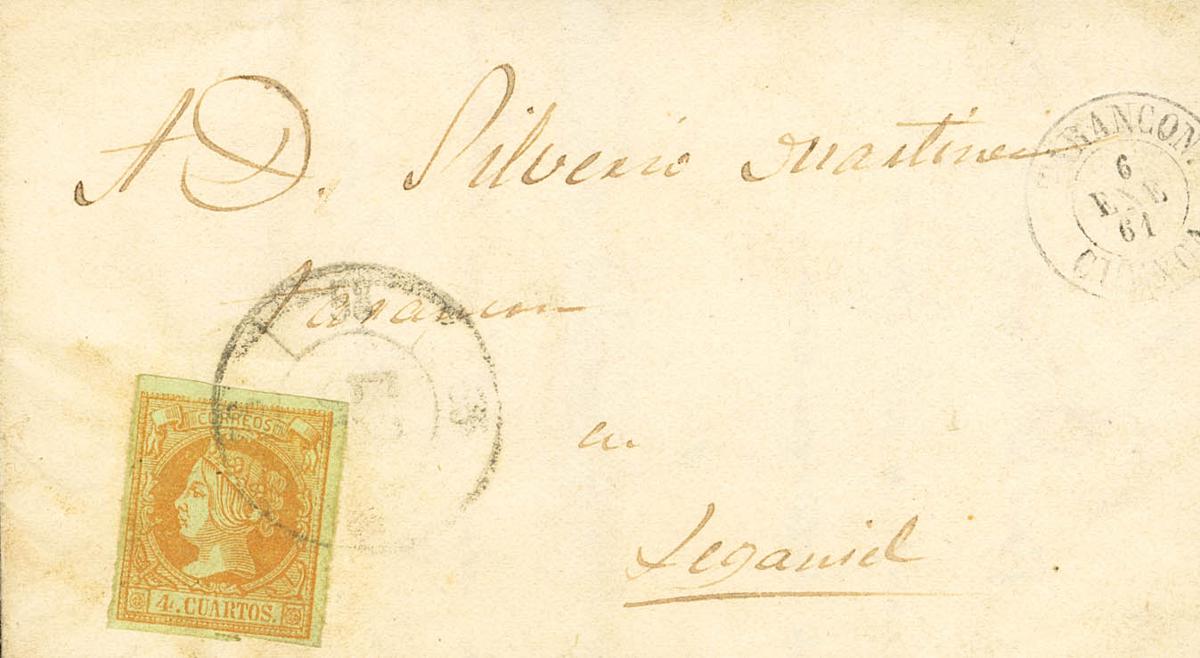 A D. Silverio Martinez
TARANCON
6
ENE
61
CUENCA
Tarancon
a.
Leganiel
CORREOS
4 CUARTOS.